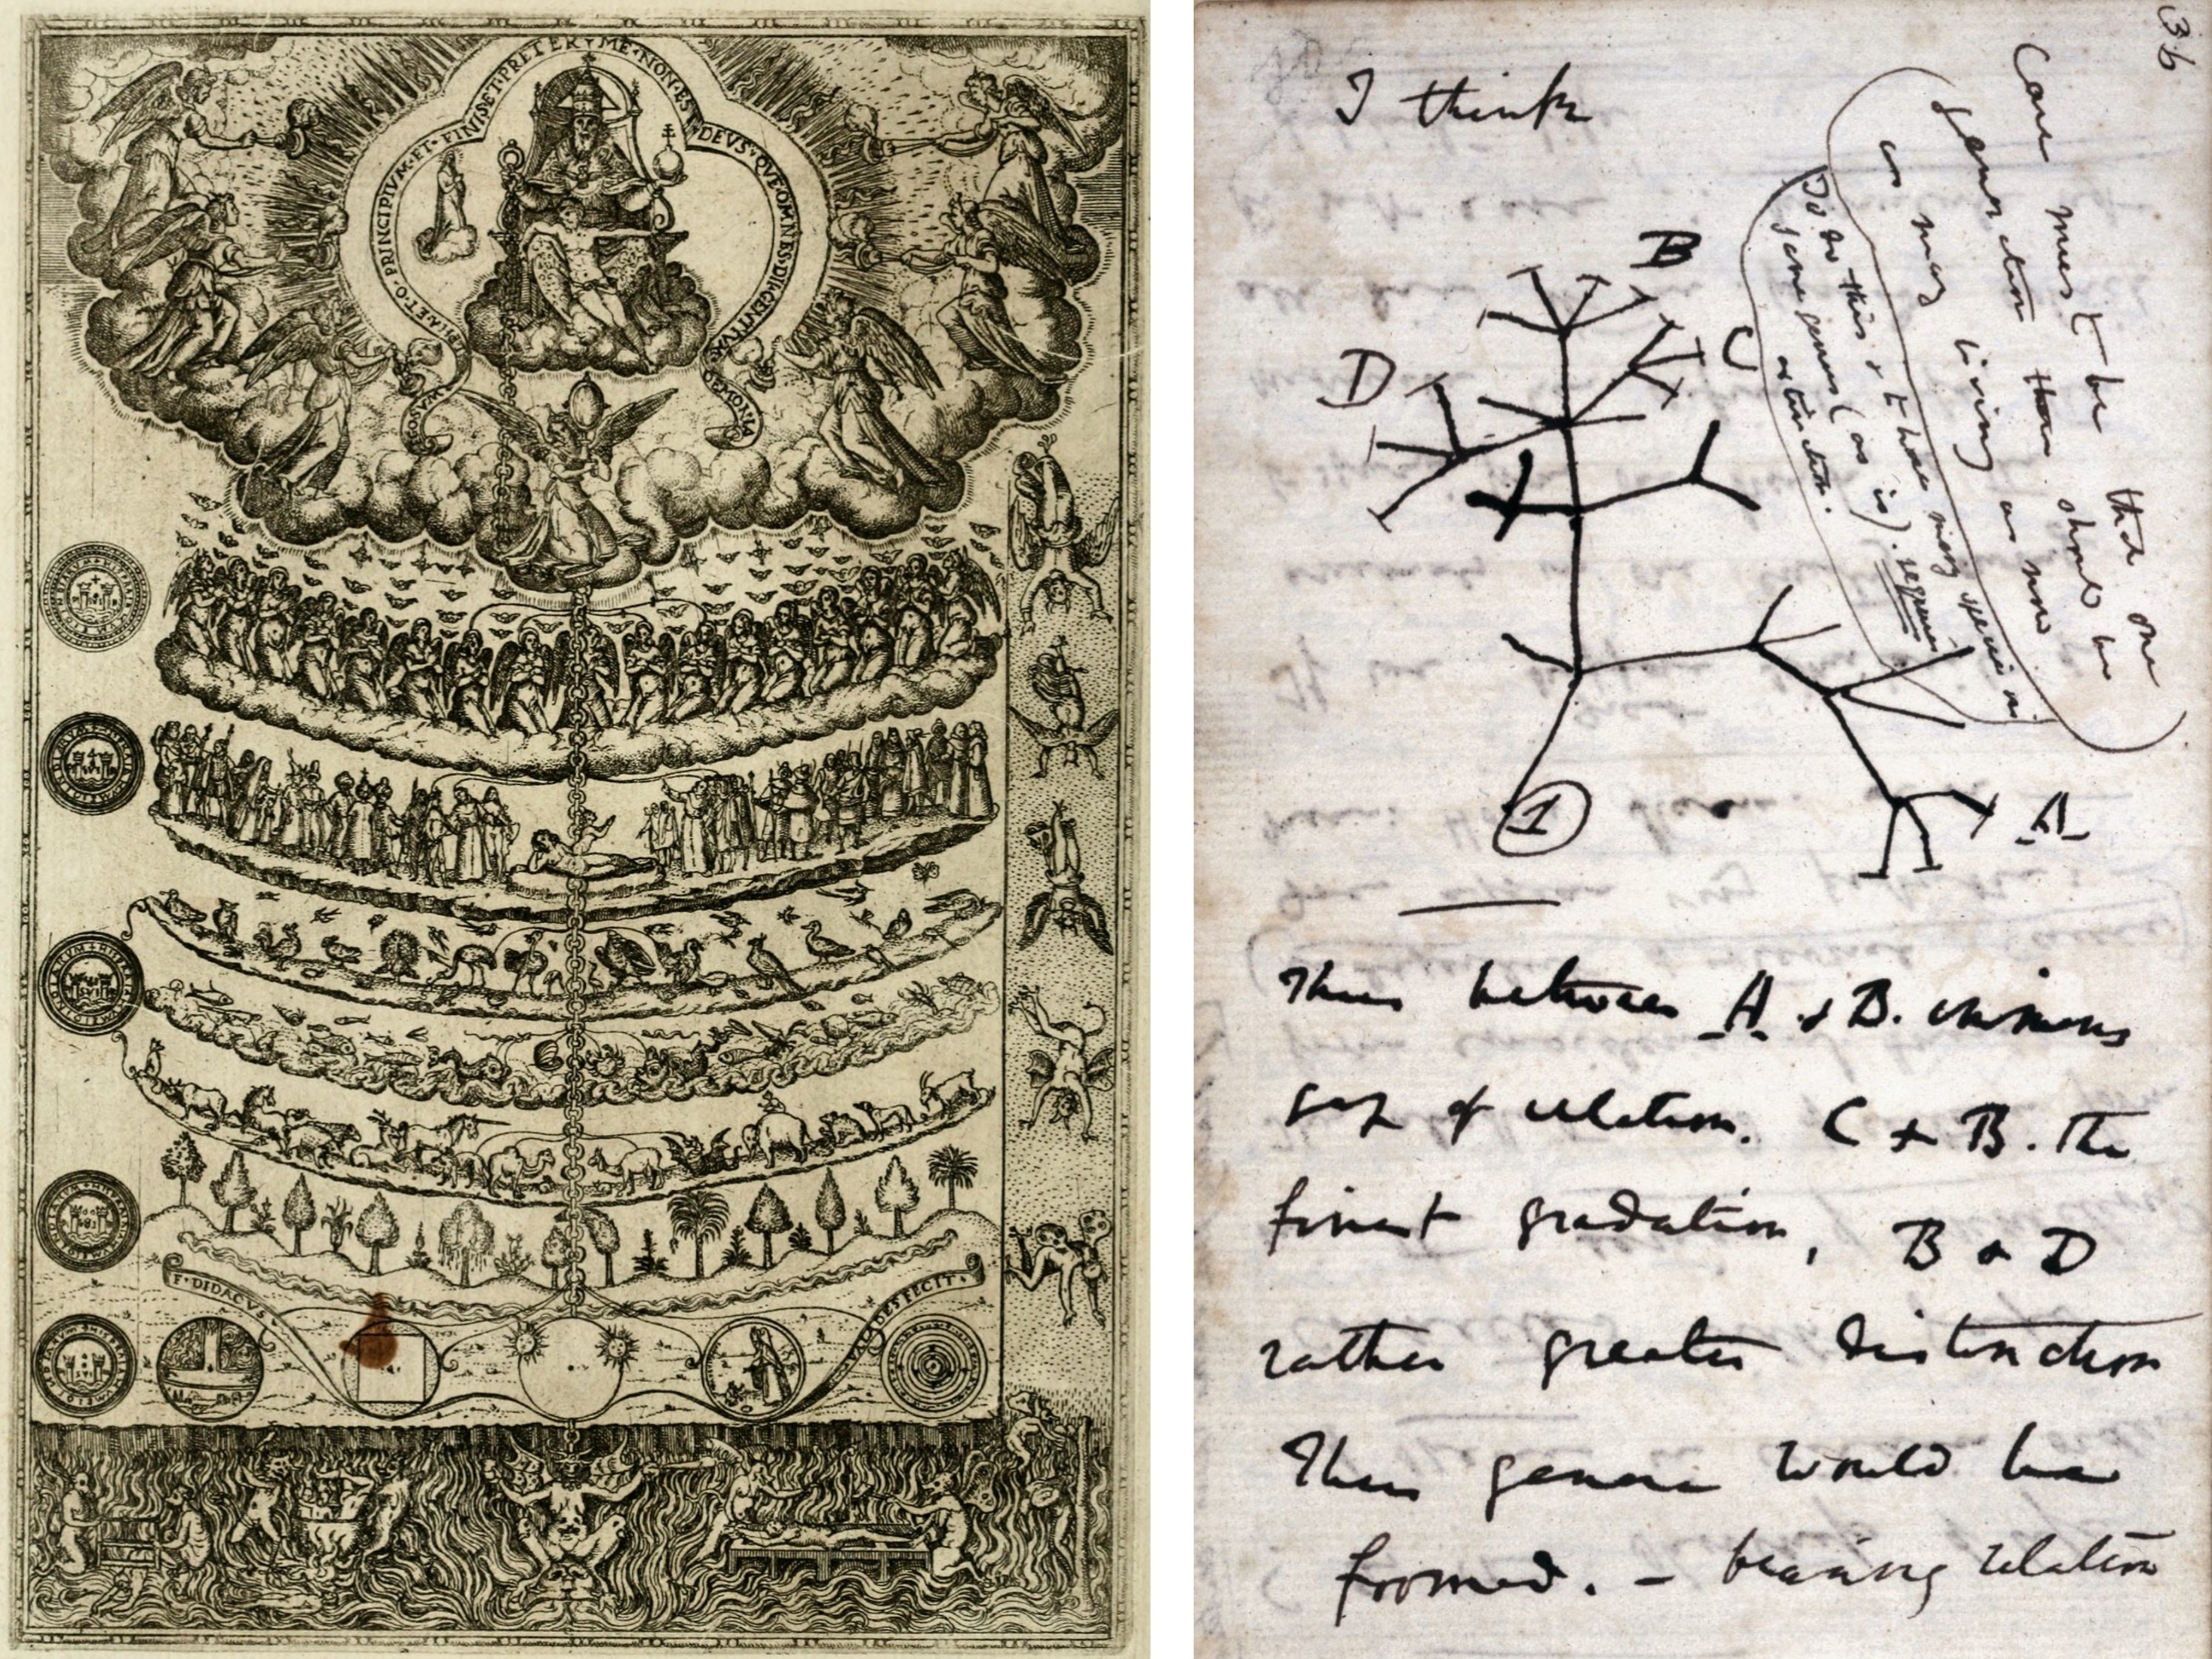 ET·O·PRINCIPIVM·ET·FINIS·ET·PRETER·ME·NON·EST·DEVS·QVE·OMNES·DII·GENTIVM·DEMONIA
F·DIDACVS·VALADES·FECIT·
36
I think
B
C
D
A
1
Case must be that one
generation then should be
as many living as now
To do this & to have many species in
same genus (as is). requires
extinction.
Thus between A & B. immens
gap of relation. C & B. The
finest gradation, B & D
rather greater distinction
Thus genera would be
formed. — bearing relation